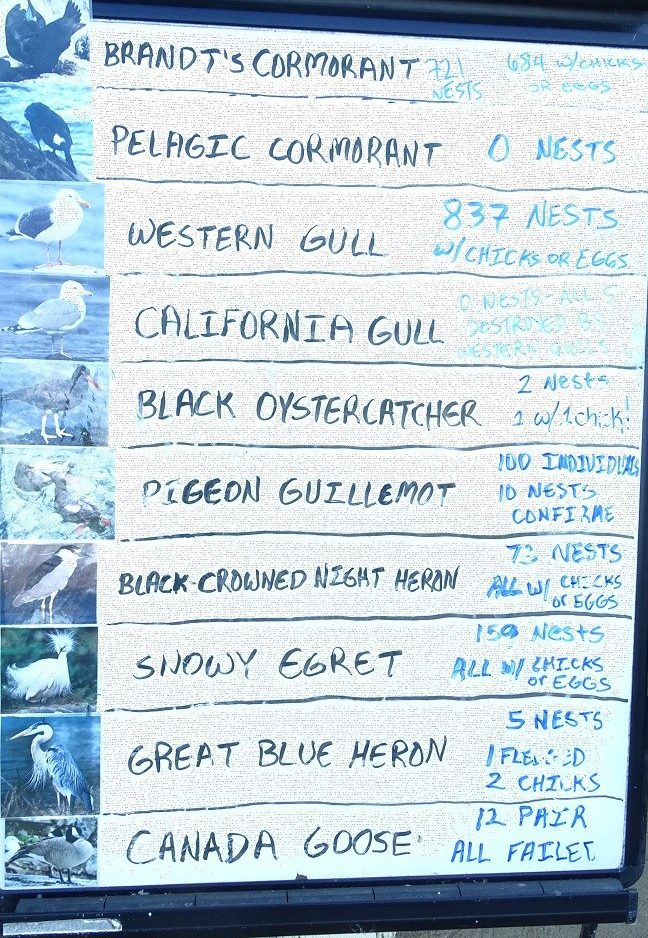 BRANDT'S CORMORANT 721 NESTS 684 W/CHICKS OR EGGS
PELAGIC CORMORANT 0 NESTS
WESTERN GULL 837 NESTS
W/CHICKS OR EGGS
CALIFORNIA GULL 0 NESTS - ALL 5
DESTROYED BY
WESTERN GULLS
BLACK OYSTERCATCHER 2 Nests
1 w/1chick!
PIGEON GUILLEMOT 100 INDIVIDUALS
10 NESTS
CONFIRME
BLACK-CROWNED NIGHT HERON 73 NESTS
ALL W/ CHICKS
or EGGS
SNOWY EGRET 159 Nests
ALL W/ CHICKS
or EGGS
GREAT BLUE HERON 5 NESTS
1 FLEDGED
2 CHICKS
CANADA GOOSE 12 PAIR
ALL FAILED